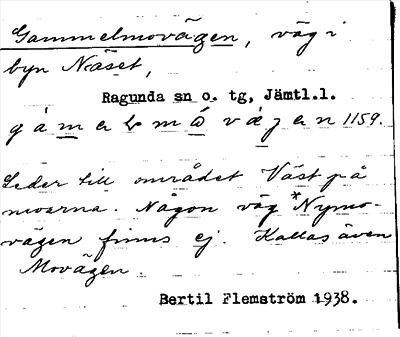 Gammelmovägen, väg i
byn Näset,
Ragunda sn o. tg, Jämtl.l.
1159.
Leder till området Väst på
moarna. Någon väg *Nymo-
vägen finns ej. Kallas även
Movägen.
Bertil Flemström 1938.